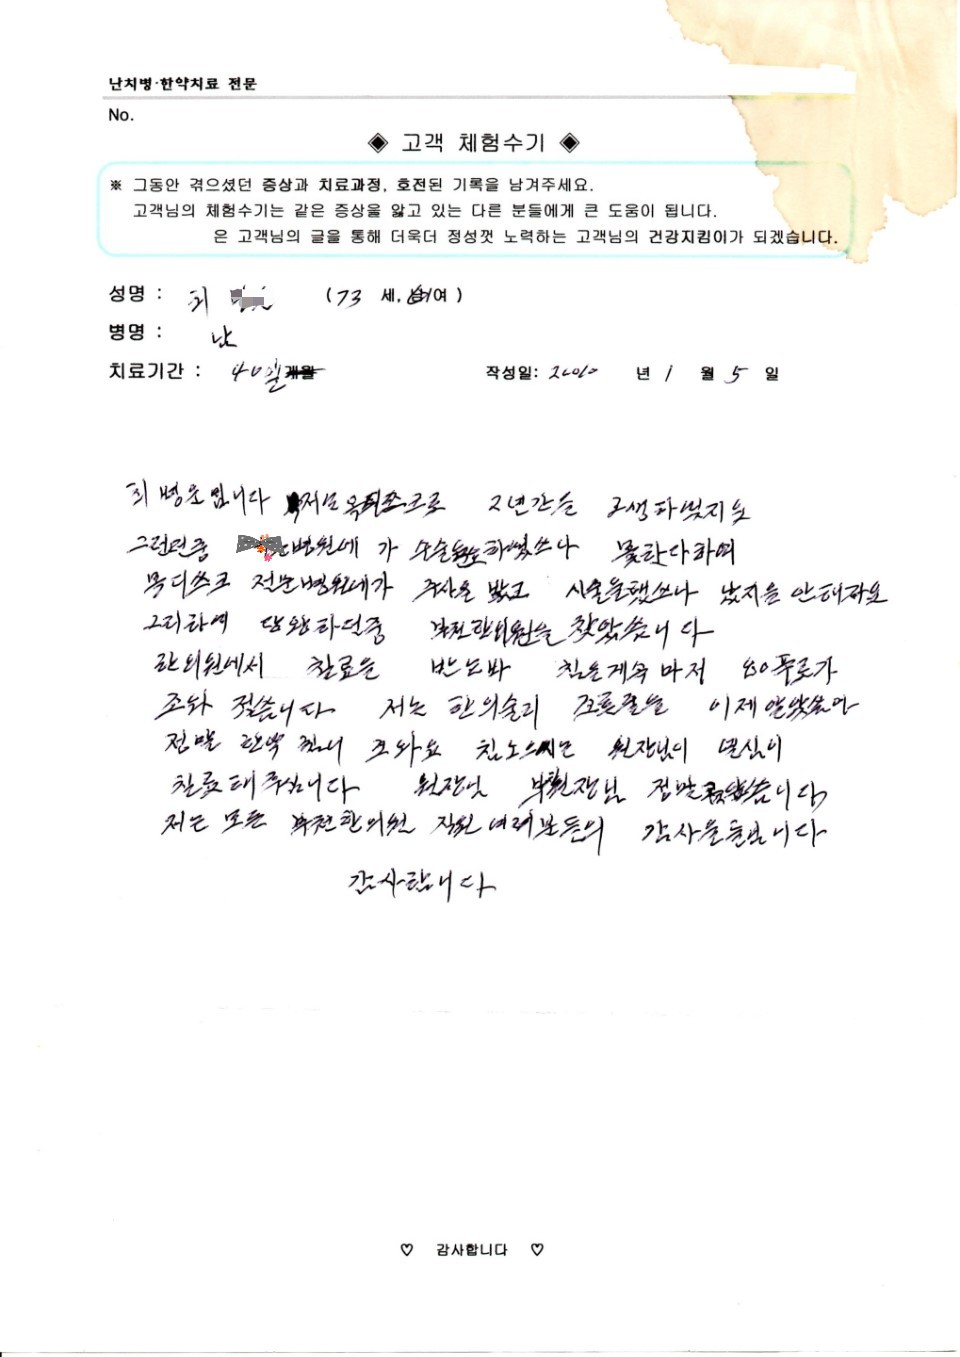 난치병·한약치료 전문
No.
◈ 고객 체험수기 ◈
※ 그동안 겪으셨던 증상과 치료과정, 호전된 기록을 남겨주세요.
고객님의 체험수기는 같은 증상을 앓고 있는 다른 분들에게 큰 도움이 됩니다.
은 고객님의 글을 통해 더욱더 정성껏 노력하는 고객님의 건강지킴이가 되겠습니다.
성명 : 최 (73 세, 여)
병명 :
치료기간 : 40일 작성일: 2010 년 1 월 5 일
최병운입니다 저는 목디스크로 2년간을 고생하였지요
그런던중 병원에 가 수술 하였쓰나 못한다하여
목디쓰크 전문병원에가 주사을 밨고 시술을했쓰나 났지을 안해라요
그리하여 당황하던중 부천한의원을 찾았씁니다
한의원에서 찰료을 받는바 침을계속 마저 80푸로가
조와 젔습니다 저는 한의술리 조흔줄을 이제알았슴니다
정말 한약 침이 조와요 침노으시는 원장님이 열심이
찰료해주십니다 원장님 부원장님 정말 습니다
저는 모든 부천한의원 직원여러분들의 감사을드립니다
감사합니다
♡ 감사합니다 ♡